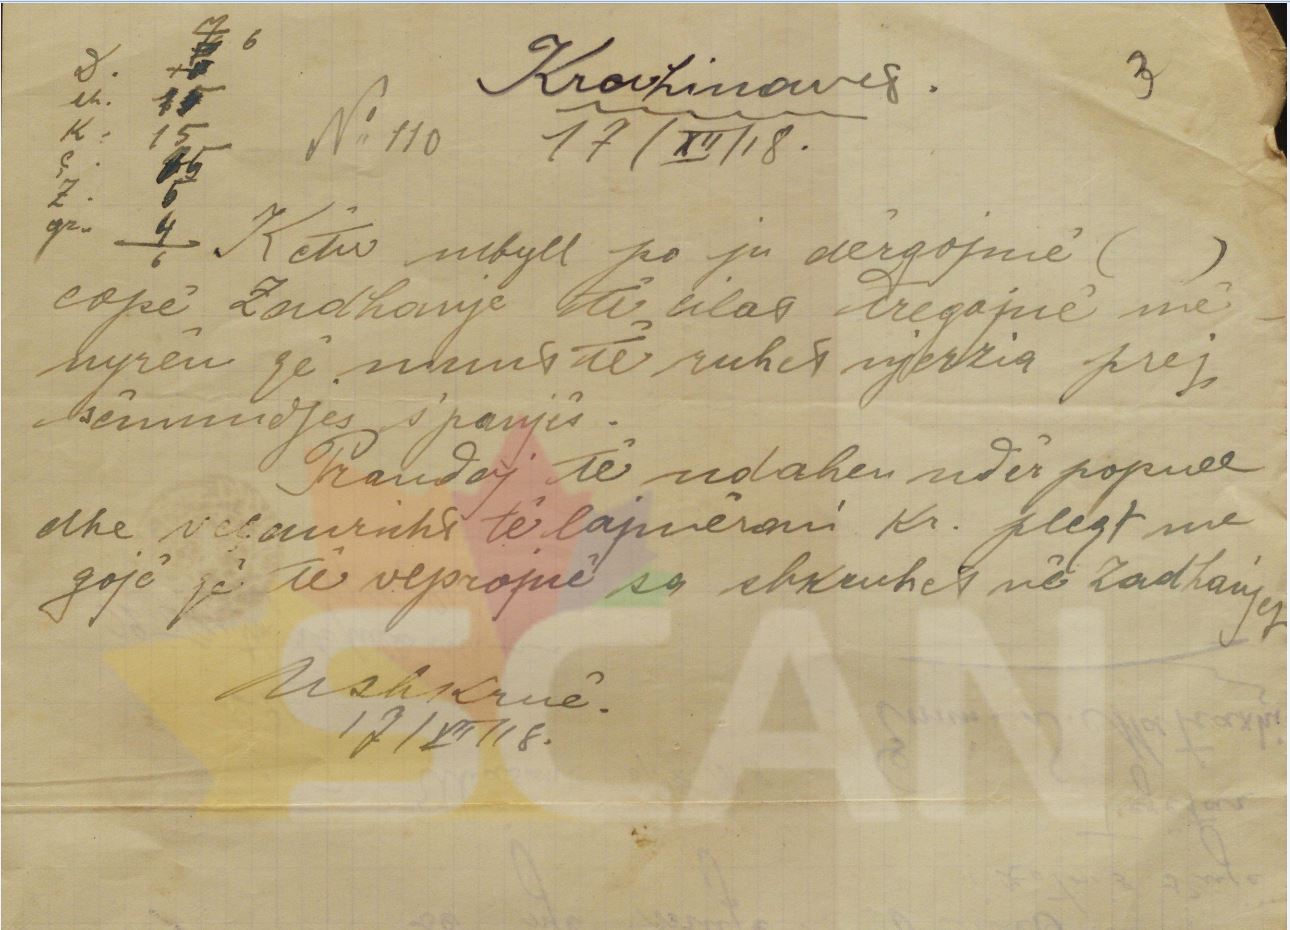 Krahinaves.
3
Nº 110
17/XII/18.
D.
sh.
K: 15
Ç.
Z. 5
gr. 4
6
6
Këtu mbyll po ju dërgojmë ( )
copë Zadhanje të cilat tregojnë më-
nyrën që munt të ruhet njerzia prej
sëmundjes s'panjës.
Prandaj të ndahen ndër popull
dhe veçanrisht të lajmëroni Kr. pleqt me
gojë që të veprojnë sa shkruhet në Zadhanjet
Ushkrue.
17/XII/18.
SCAN